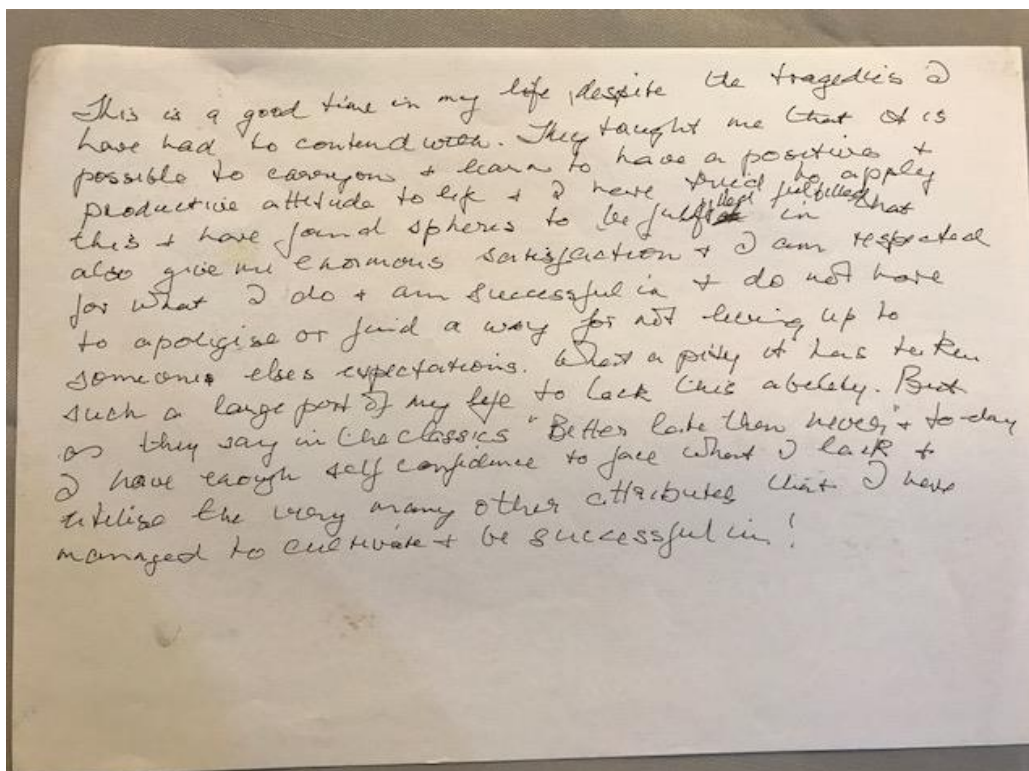 This is a good time in my life, despite the tragedies I
have had to contend with. They taught me that it is
possible to carry on + learn to have a positive +
productive attitude to life + I have tried to apply
this + have found spheres to be fulfilled in that
also give me enormous satisfaction + I am respected
for what I do + am successful in + do not have
to apoligise or find a way for not living up to
someones elses expectations. What a pity it has taken
such a large part of my life to lack this ability. But
as they say in the classics "Better late then never" + to-day
I have enough self confidence to face what I lack +
utilise the very many other attributes that I have
managed to cultivate + be successful in!